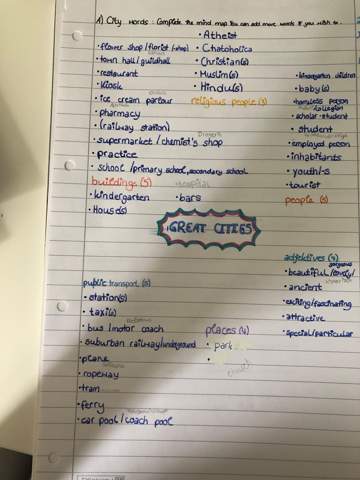 A) City words : Complete the mind map. You can add more words if you wish to.
• Atheist
• flower shop/florist (shop)
• Chatoholica
• town hall/guildhall
• Christian(s)
• restaurant
• Muslim(s)
• Kiosk
• Hindu(s)
• ice cream parlour
religious people (5)
• pharmacy
• (railway station)
• supermarket / chemist's shop
• practice
• school /primary school, secondary school
buildings (5)
hospital
• kindergarten
• bars
• House(s)
• kindergarten children
• baby(s)
• homeless person
• scholar-student
• student
• employed person
• inhabitants
• youth/-s
• tourist
people (5)
GREAT CITIES
adjectives (4)
gorgeous
• beautiful/lovely/
• ancient
• exciting/fascinating
• attractive
• special/particular
public transport (8)
• station(s)
• taxi(s)
• bus /motor coach
• suburban railway/underground
• plane
• ropeway
• tram
• ferry
• car pool / coach pool
places (4)
• park
church